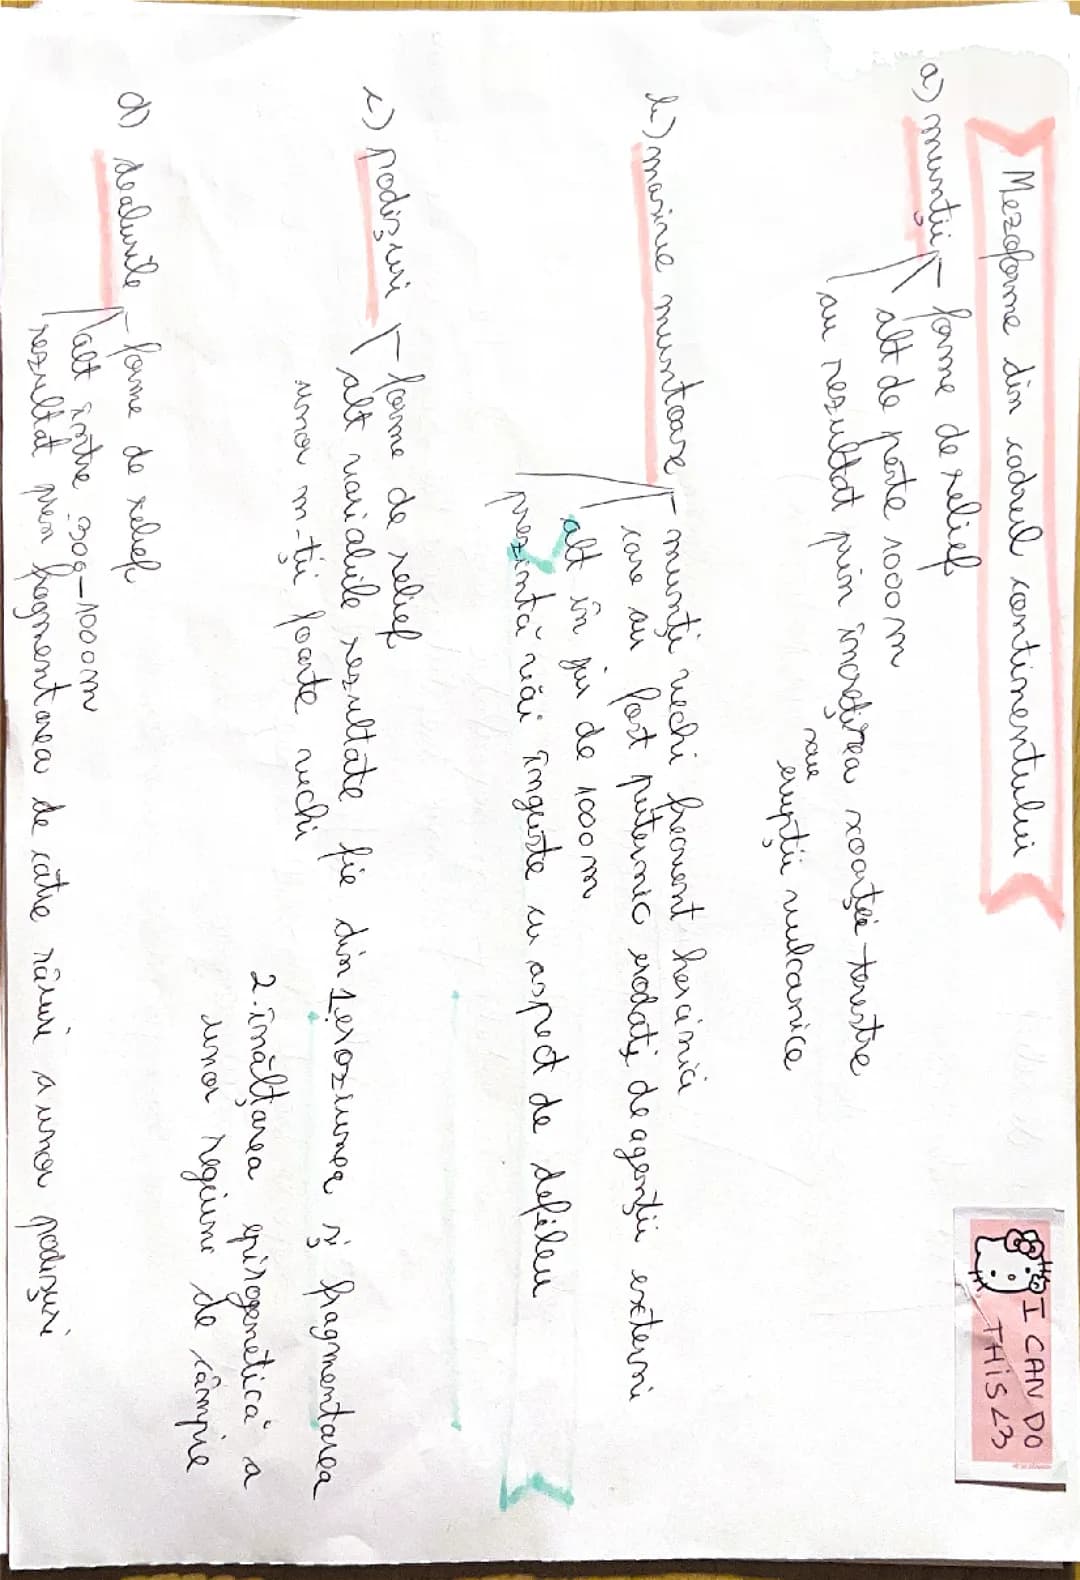 Mezoforme din cadrul continentului
I CAN DO
THIS <3
a) munții - forme de relief
alt de peste 1000m
au rezultat prin încrețirea scoarței terestre
sau
erupții vulcanice
b) masive muntoase - munți vechi frecvent hercinici
care au fost puternic erodați de agenții externi
alt în jur de 1000m
prezintă văi înguste cu aspect de defileu
c) podișuri - forme de relief
alt variabile rezultate fie din 1. eroziunea și fragmentarea
unor m-ții foarte vechi
2. înălțarea epirogenetică a
unor regiuni de câmpie
d) dealurile - forme de relief
alt între 300-1000m
rezultat prin fragmentarea de către râuri a unor podișuri